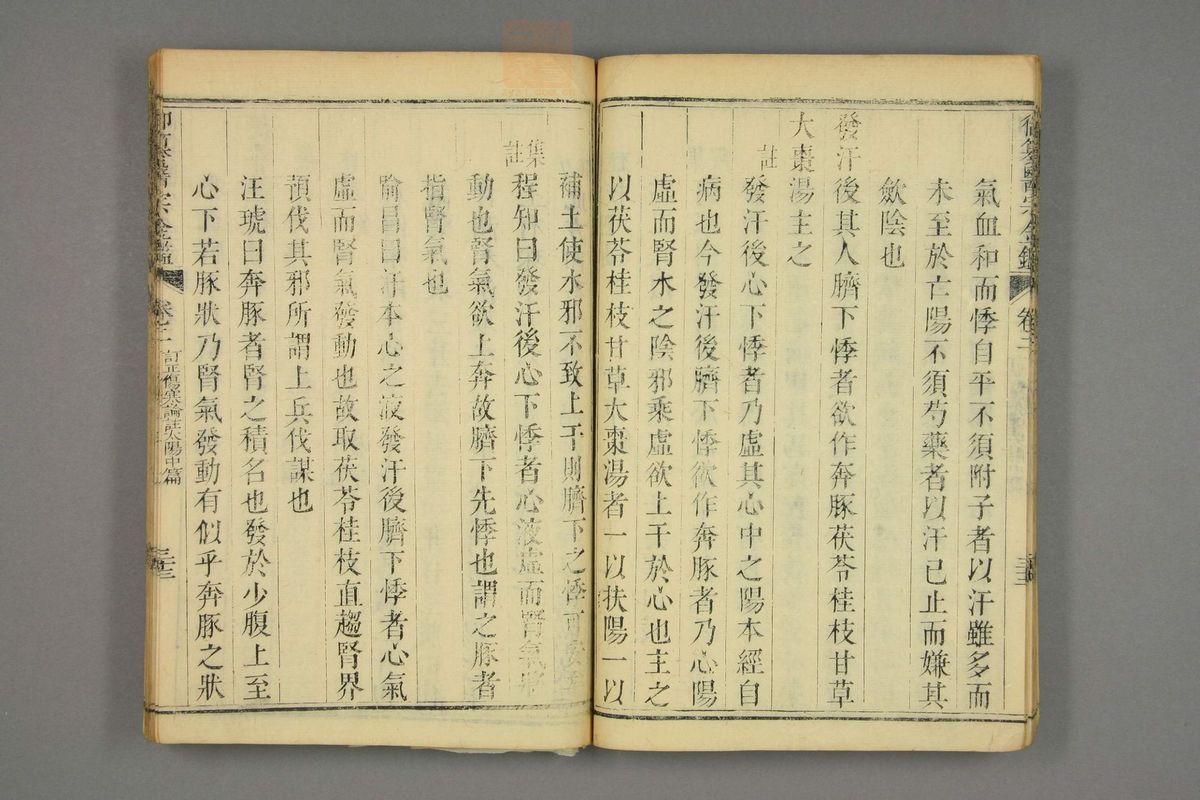 氣血和而悸自平不須附子者以汗雖多而
未至於亡陽不須芍藥者以汗已止而嫌其
斂陰也
發汗後其人臍下悸者欲作奔豚茯苓桂枝甘草
大棗湯主之
註發汗後心下悸者乃虛其心中之陽本經自
病也今發汗後臍下悸欲作奔豚者乃心陽
虛而腎水之陰邪乘虛欲上干於心也主之
以茯苓桂枝甘草大棗湯者一以扶陽一以
補土使水邪不致上干則臍下之悸可安
集註程知曰發汗後心下悸者心液虛而腎氣
動也腎氣欲上奔故臍下先悸也謂之豚者
指腎氣也
喻昌曰汗本心之液發汗後臍下悸者心氣
虛而腎氣發動也故取茯苓桂枝直趨腎界
預伐其邪所謂上兵伐謀也
汪琥曰奔豚者腎之積名也發於少腹上至
心下若豚狀乃腎氣發動有似乎奔豚之狀
御纂醫宗金鑑 卷二 訂正傷寒論註太陽中篇